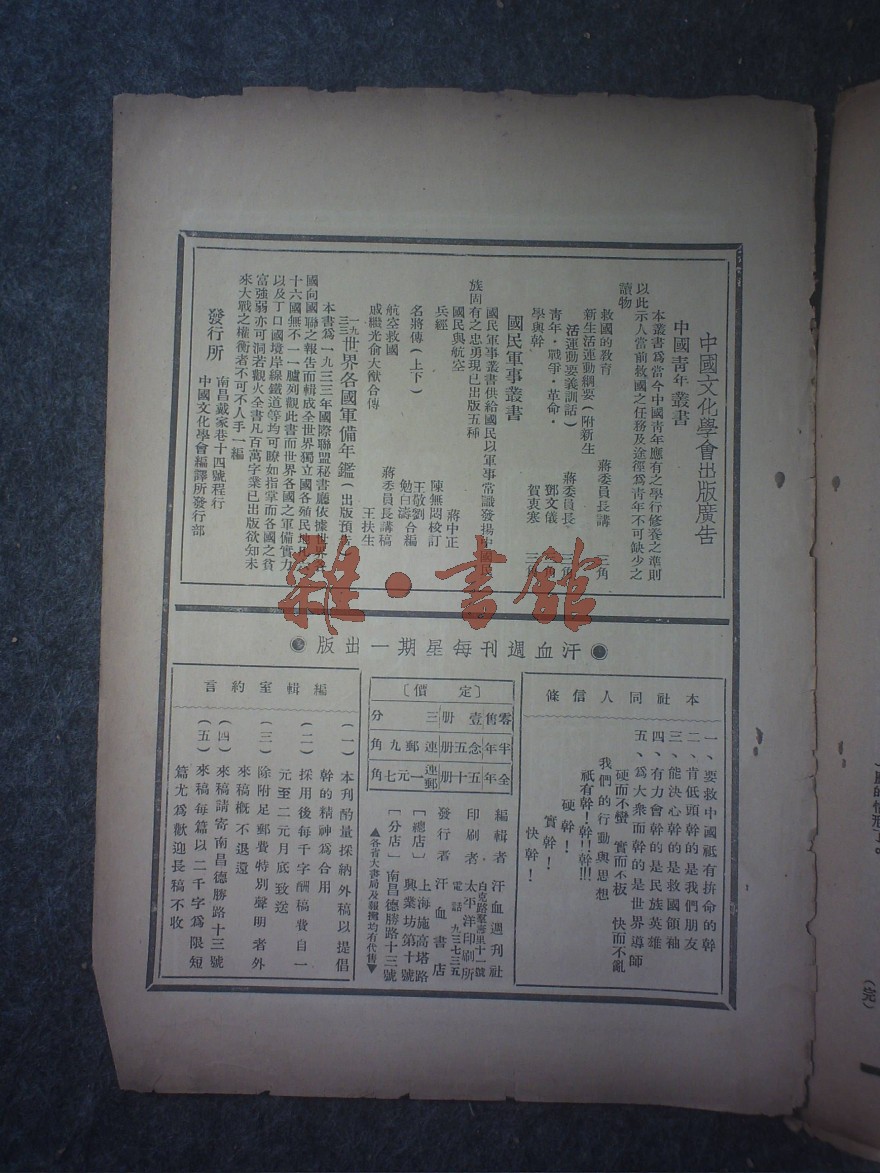 中國文化學會出版廣告
中國青年叢書
本叢書爲當今中國青年應有之學行修養之準則
以此示人當前救國之任務及途徑爲青年不可缺少之
讀物
救國的教育 蔣委員長講 三角
新生活運動綱要(附新生
活運動要義訓話) 蔣委員長 三角
青年·戰爭·革命· 鄧文儀 三角
學與幹 賀衷寒 三角
國民軍事叢書
國民軍事叢書供給國民以軍事常識發揚中國民
族固有之忠勇現已出版五種
國民與航空 蔣中正
兵經 陳無悶校訂
名將傳(上下) 王敬劉勉曰濤合編
航空救國 蔣委員長講稿
戚繼光俞大猷合傳 王扶生
一九三三世界各國軍備年鑑(出版預告
本書爲一九三三年國際聯盟秘書廳依據世界
國向國聯之報告而輯成全世界獨立國各殖民地
十六國無不一一臚列觀此書而世界各國之軍備實力
以及丁口國境岸線鐵道等均可瞭如指掌而各國之貧
富強弱亦可洞若觀火全書凡百萬字業已出版欲知未
來大戰之權衡者不可不人手一編
發行所 南昌戴家巷十四號程行
中國文化學會編譯所發行部
雜·書館
●汗血週刊每星期一出版●
本社同人信條
一、要救中國祇有拚命的幹
二、肯低頭幹的是我們朋友
三、能決心幹的是救國領袖
四、有力會幹的是民族英雄
五、爲大衆而幹的是世界導師
硬而不蠻 實而不板 快而不亂
我們的行動與思想
祇有幹!幹!!幹!!!
硬幹!
實幹!
快幹!
〔定價〕
零售壹冊三分
半年念五冊連郵九角
全年五十冊連郵一元七角
編輯者 汗血週刊社
白克路十一號
印刷者 太平洋印刷所
電話 九三七三五
發行者 汗血書店
〔總店〕上海施高塔路
興業坊第十號
〔分店〕南昌德勝路十三號
▲各省大書局及報攤均有代售▼
編輯室約言
(一)本刊酌量採納外稿以提倡
幹的精神爲合用
(二)採用後每千字酬稿費自一
元至二元月底致送
(三)除附足郵費特別聲明者外
來稿概不退還
(四)來稿請寄南昌德勝路十三號
(五)來稿每篇以二千字爲限短
篇尤爲歡迎長稿不收
(完)